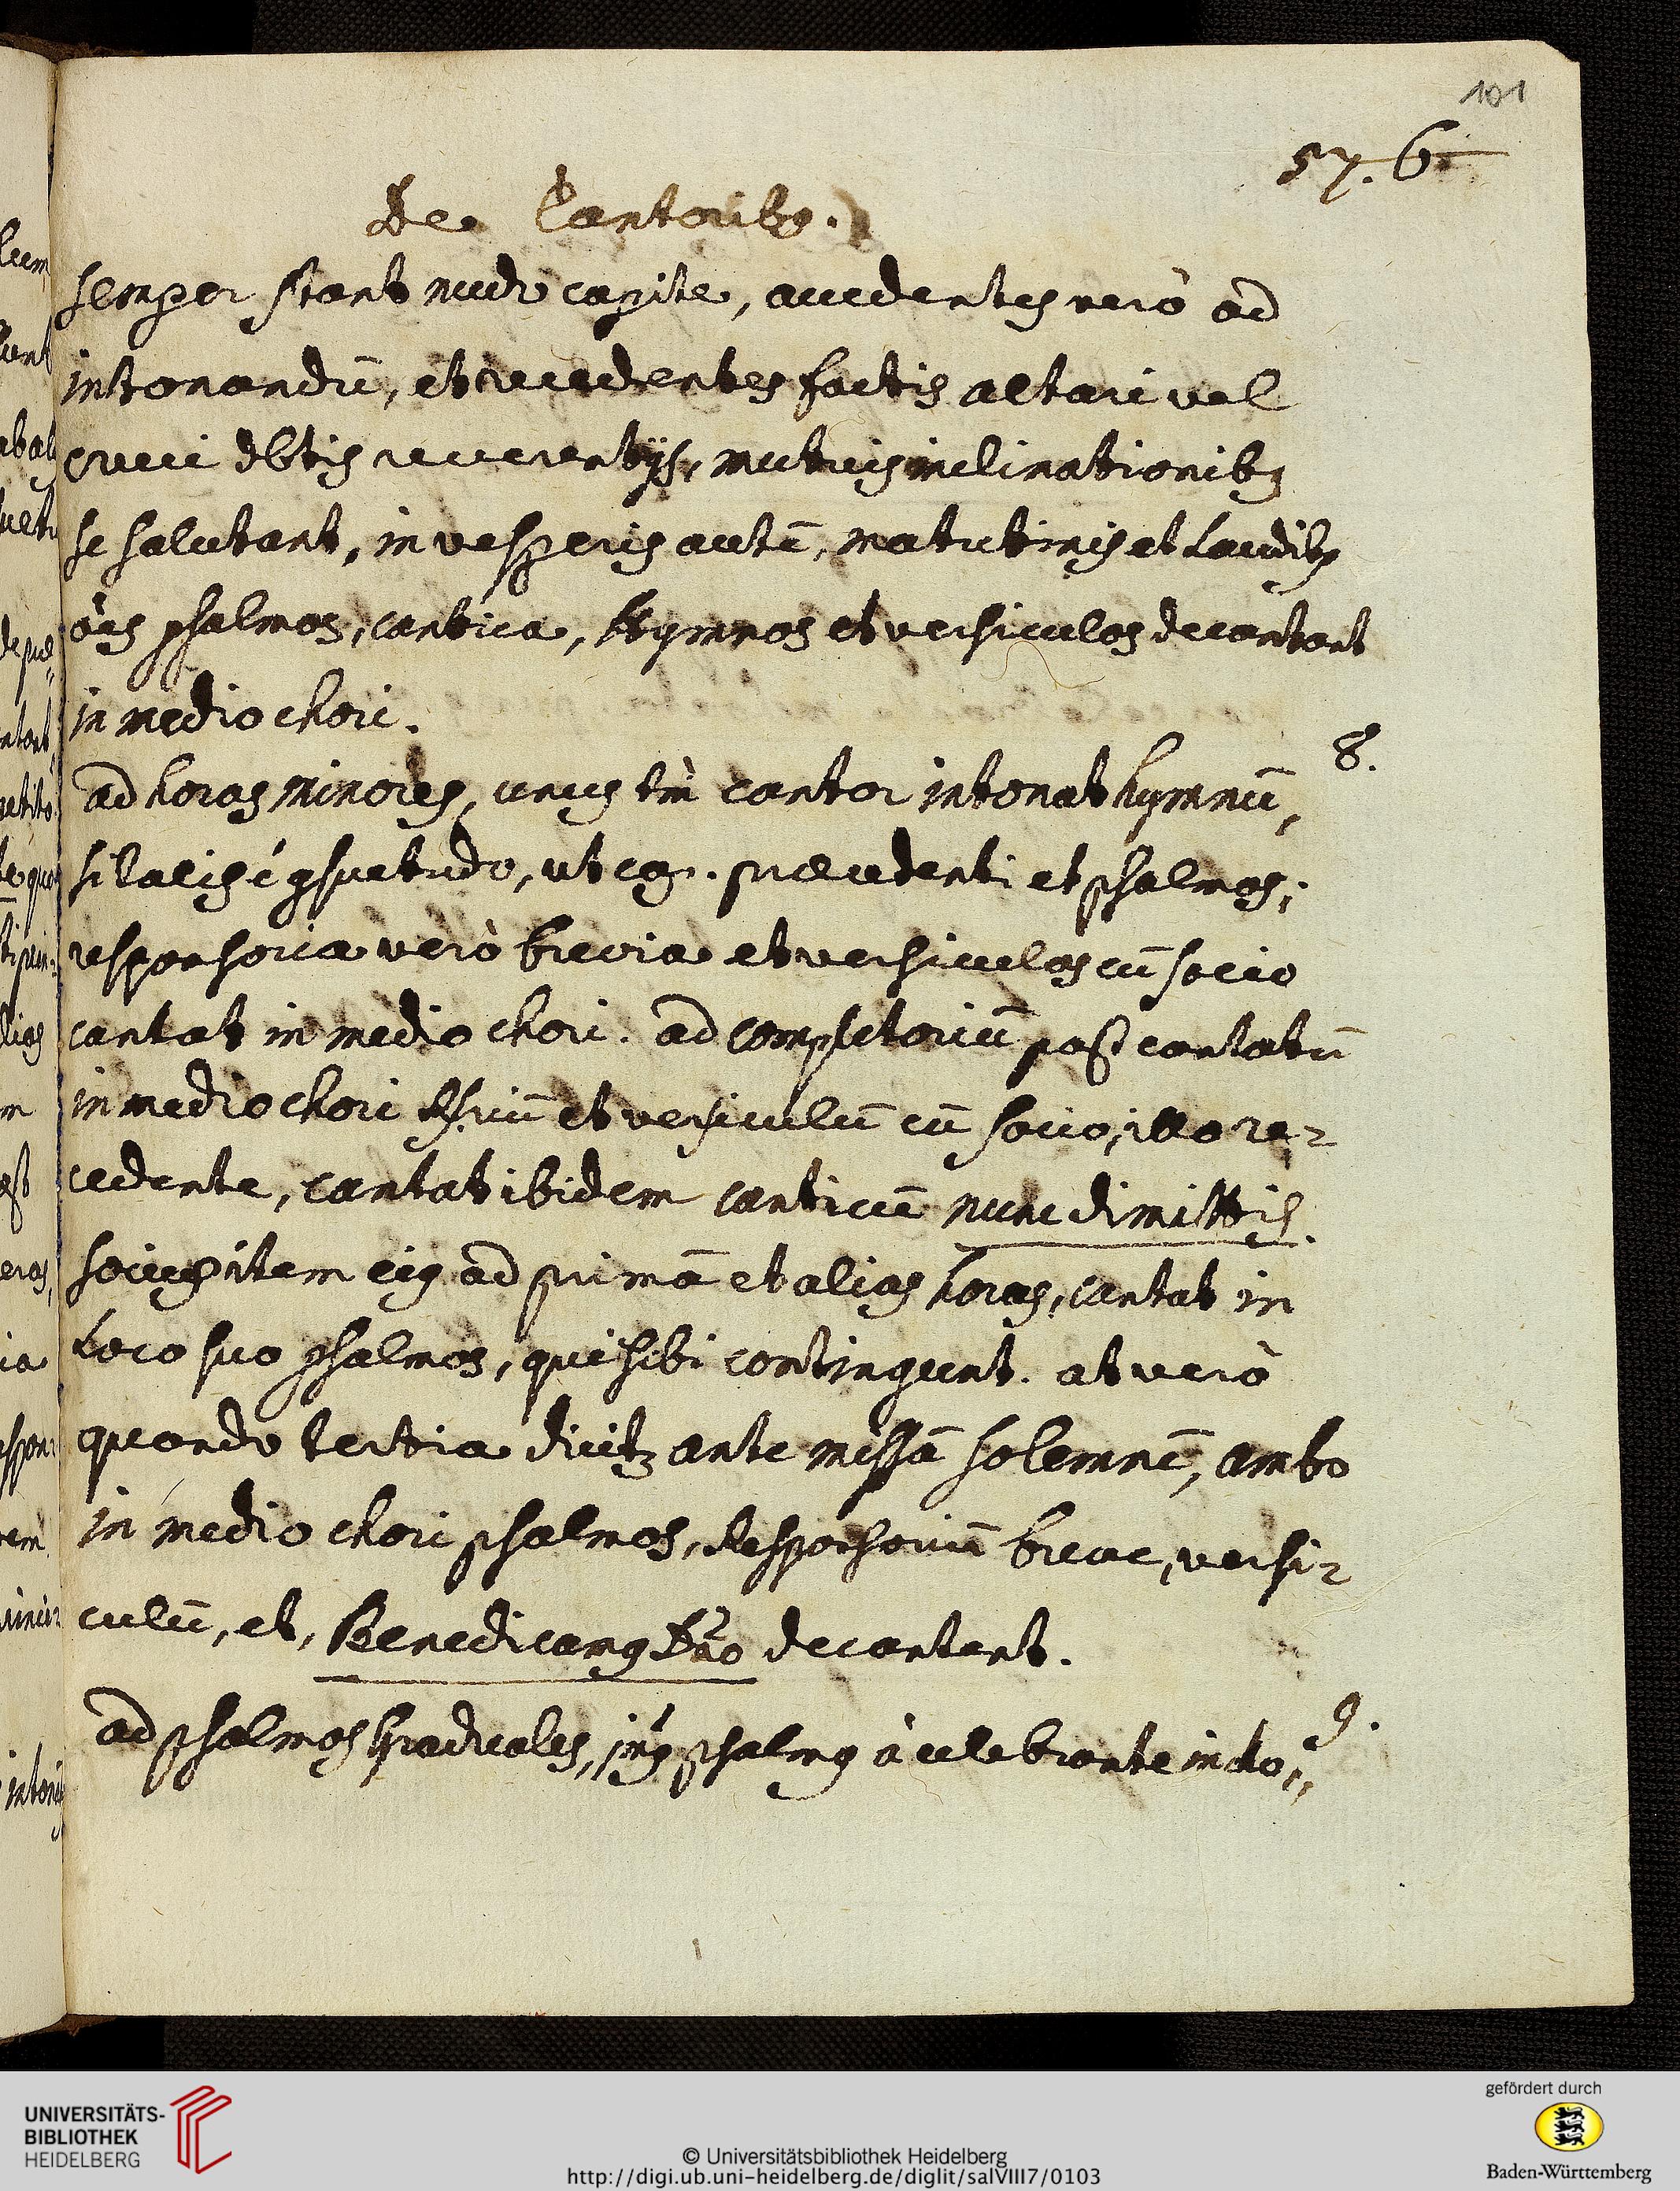 101
57. 6
De Cantorib9.
semper stant nudo capite, accedentes verò ad
intonandū, et recedentes factis altari vel
cruci dbtis reverentijs, mutuis inclinationibq
se salutant, in vesperis autē, matutinis et Laudibq
oēs psalmos, cantica, Hymnos et versiculos decantant
in medio chori.
8.
ad horas minores, unus tm̄ cantor intonat hymnū,
si talis ē gsuetudo, ut cg. praecedenti et psalmos;
responsoria verò brevia et versiculos cū socio
cantat in medio chori. ad completoriū post cantatū
in medio chori Rsriū et versiculū cū socio, illo re-
cedente, cantat ibidem canticū nunc dimittis.
socius item ei9 ad primā et alias horas, cantat in
Loco suo psalmos, qui sibi contingunt. at verò
quando tertia dicitz ante missā solemnē, ambo
in medio chori psalmos, Responsoriū breve, versi-
culū, et, Benedicam9 Dn̄o decantant.
9.
ad psalmos Graduales, jm9 psalm9 à celebrante incho-
lum
intonā
UNIVERSITÄTS-
BIBLIOTHEK
HEIDELBERG
© Universitätsbibliothek Heidelberg
http://digi.ub.uni-heidelberg.de/diglit/salVIII7/0103
gefördert durch
Baden-Württemberg